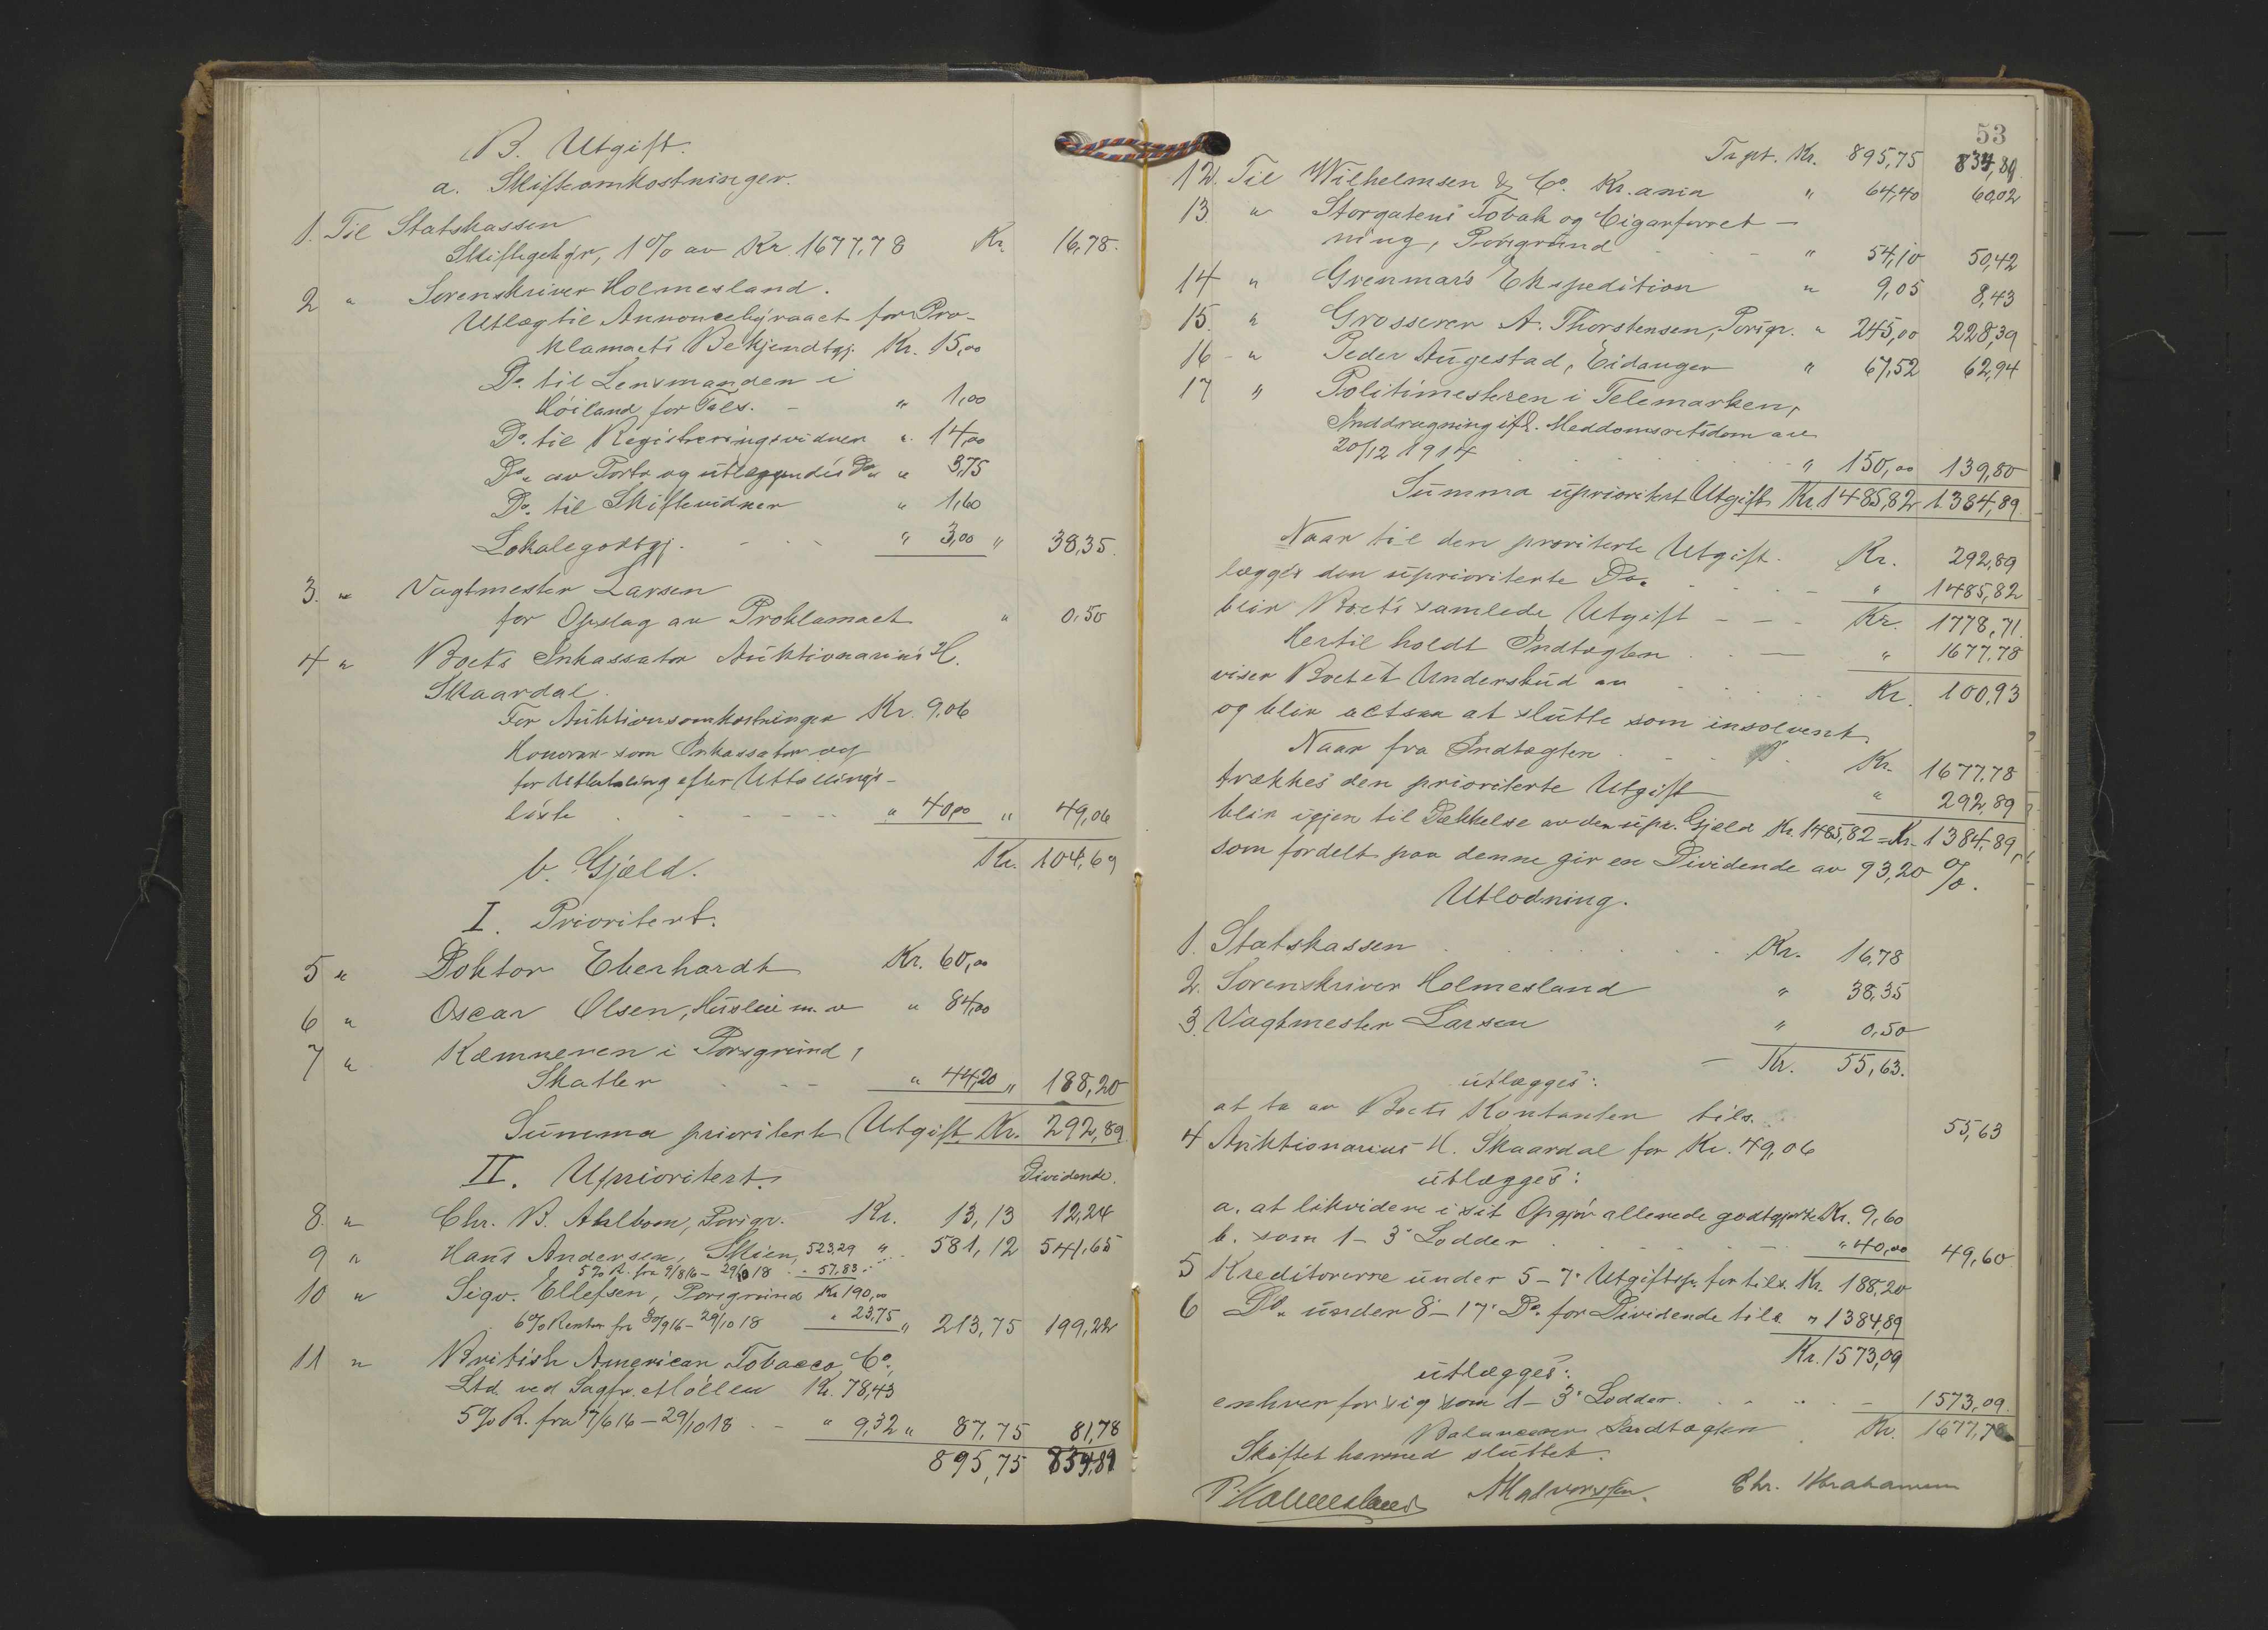 B. Utgift.
a. Skifteomkostninger.
1. Til Statskassen
Skiftegebyr, 1% av Kr. 1677,78 Kr. 16,78.
2 " Sorenskriver Holmesland.
Utlæg til Annoncebyraaet for Pro-
klamaets Bekjendtgj. Kr. 15,00
Do. til Lensmanden i
Höiland for Do. - " 1,00
Do. til Registreringsvidner " 14,00
Do. av Porto og utlæggendes Do. " 3,75
Do. til Skiftevidner " 1,60
Lokalegodtgj. - - - " 3,00 " 38,35.
3. " Vagtmester Larsen
for Opslag av Proklamaet " 0,50
4 " Boets Inkassator Auktionarius H.
Skaardal.
For Auktionsomkostninger Kr. 9,06
Honorar som Inkassator og
for Utbetaling efter Utlodnings-
liste - - - " 40,00 " 49,06
Kr. 104,69
b. Gjæld.
I. Prioritert.
5 " Doktor Eberhardt Kr. 60,00
6 " Oscar Olsen, Husleie m. v. " 84,00
7 " Kæmneren i Porsgrund,
Skatter - - " 44,20 " 188,20
Summa prioritert Utgift Kr. 292,89
II. Uprioritert. Dividende.
8. " Chr. B. Ahlbom, Porsgr. Kr. 13,13 12,24
9 " Hans Andersen, Skien, 523,29 " 581,12 541,65
5% R. fra 9/8 16 - 29/10 18 " 57,83
10 " Sigv. Ellefsen, Porsgrund Kr 190,00
6% Renter fra 30/9 16 - 29/10 18 " 23,75 " 213,75 199,22
11 " British American Tobacco Co.,
Ltd. ved Sagfr. Möller Kr. 78,43
5% R. fra 17/6 16 - 29/10 18 - - " 9,32 " 87,75 81,78
895,75 834,89
53
Trpt. Kr. 895,75 834,89
12. Til Wilhelmsen & Co. Kr.ania " 64,40 60,02
13. " Storgatens Tobak og Cigarforret-
ning, Porsgrund - - - " 54,10 50,42
14 " Grenmars Ekspedition " 9,05 8,43
15. " Grosserer A. Thorstensen, Porsgr. " 245,00 228,39
16 - " Peder Augestad, Eidanger " 67,52 62,94
17 " Politimesteren i Telemarken,
Inddragning ifl. Meddomsretsdom av
20/12 1914 . . . . " 150,00 139,80
Summa uprioritert Utgift Kr. 1485,82 1384,89
Naar til den prioriterte Utgift. Kr. 292,89
lægges den uprioriterte Do. - - - " 1485,82
blir Boets samlede Utgift - - - Kr. 1778,71.
Hertil holdt Indtægten - - " 1677,78
viser Boet et Underskud av - - - Kr. 100,93
og blir altsaa at slutte som insolvent.
Naar fra Indtægten - - - Kr. 1677,78
trækkes den prioriterte Utgift " 292,89
blir igjen til Dækkelse av den upr. Gjæld Kr. 1485,82 = Kr. 1384,89,
som fordelt paa denne gir en Dividende av 93,20 %.
Utlodning.
1. Statskassen . . . . Kr. 16,78
2. Sorenskriver Holmesland " 38,35
3. Vagtmester Larsen " 0,50
- Kr. 55,63.
utlægges:
at ta av Boets Kontanter tils. 55,63
4 Auktionarius H. Skaardal for Kr. 49,06
utlægges:
a. at likvidere i sit Opgjör allerede godtgjorte Kr. 9,60
b. som 1 - 3' Lodder . . . - " 40,00 49,60
5 Kreditorerne under 5 - 7' Utgiftsp. for tils. Kr. 188,20
6 Do. under 8' - 17' Do. for Dividende tils. " 1384,89
Kr. 1573,09
utlægges:
enhver for sig som 1 - 3' Lodder. . . - 1573,09.
Balancerer Indtægten Kr. 1677,78
Skiftet hermed sluttet.
P. Holmesland A Halvorsen. Chr. Abrahamsen